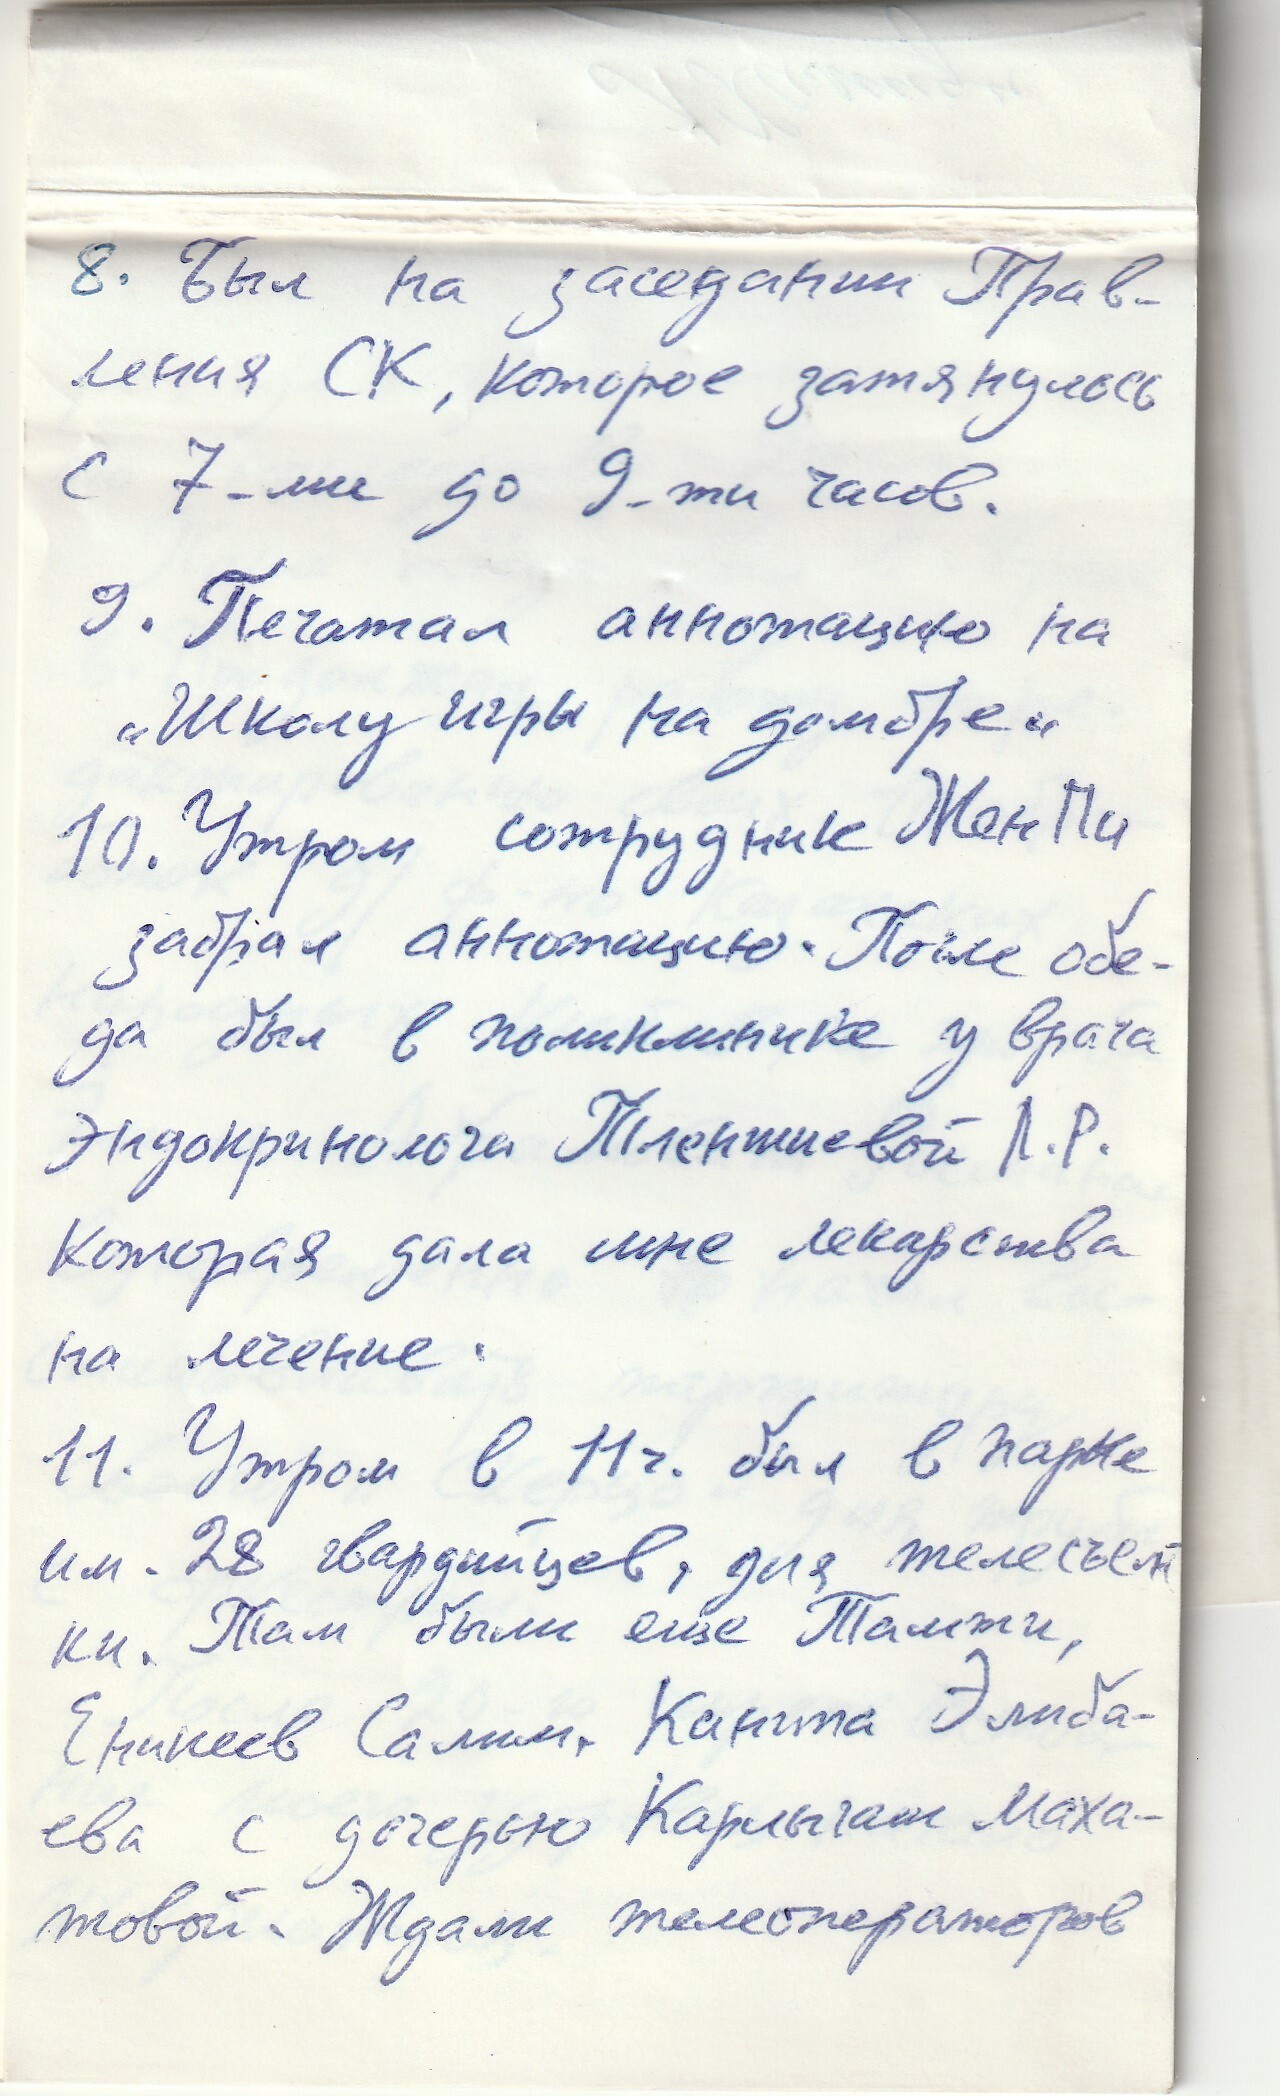 8. Был на заседании Прав-
ления СК, которое затянулось
с 7-ми до 9-ти часов.
9. Печатал аннотацию на
„Школу игры на домбре“
10. Утром сотрудник ЖенПи
забрал аннотацию. После обе-
да был в поликлинике у врача
эндокринолога Тлентиевой Л.Р.
которая дала мне лекарства
на лечение.
11. Утром в 11ч. был в парке
им. 28 гвардийцев, для телесъем
ки. Там были еще Тамти,
Еникеев Салим. Канита Элиба-
ева с дочерью Карлыгаш Маха-
товой. Ждали телеоператоров